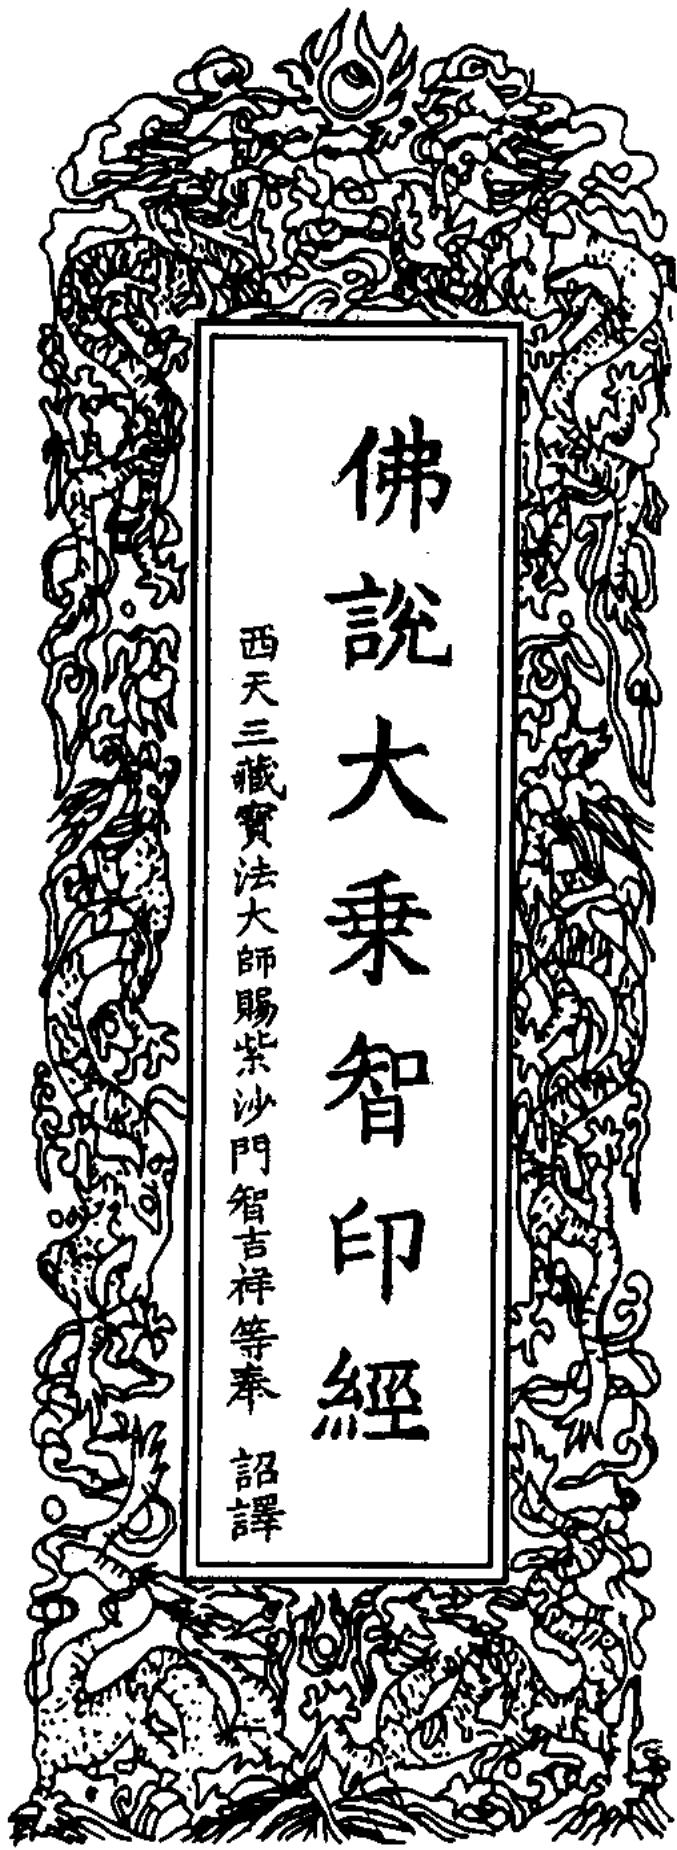 佛說大乗智印經
西天三藏寶法大師賜紫沙門智吉祥等奉 詔譯